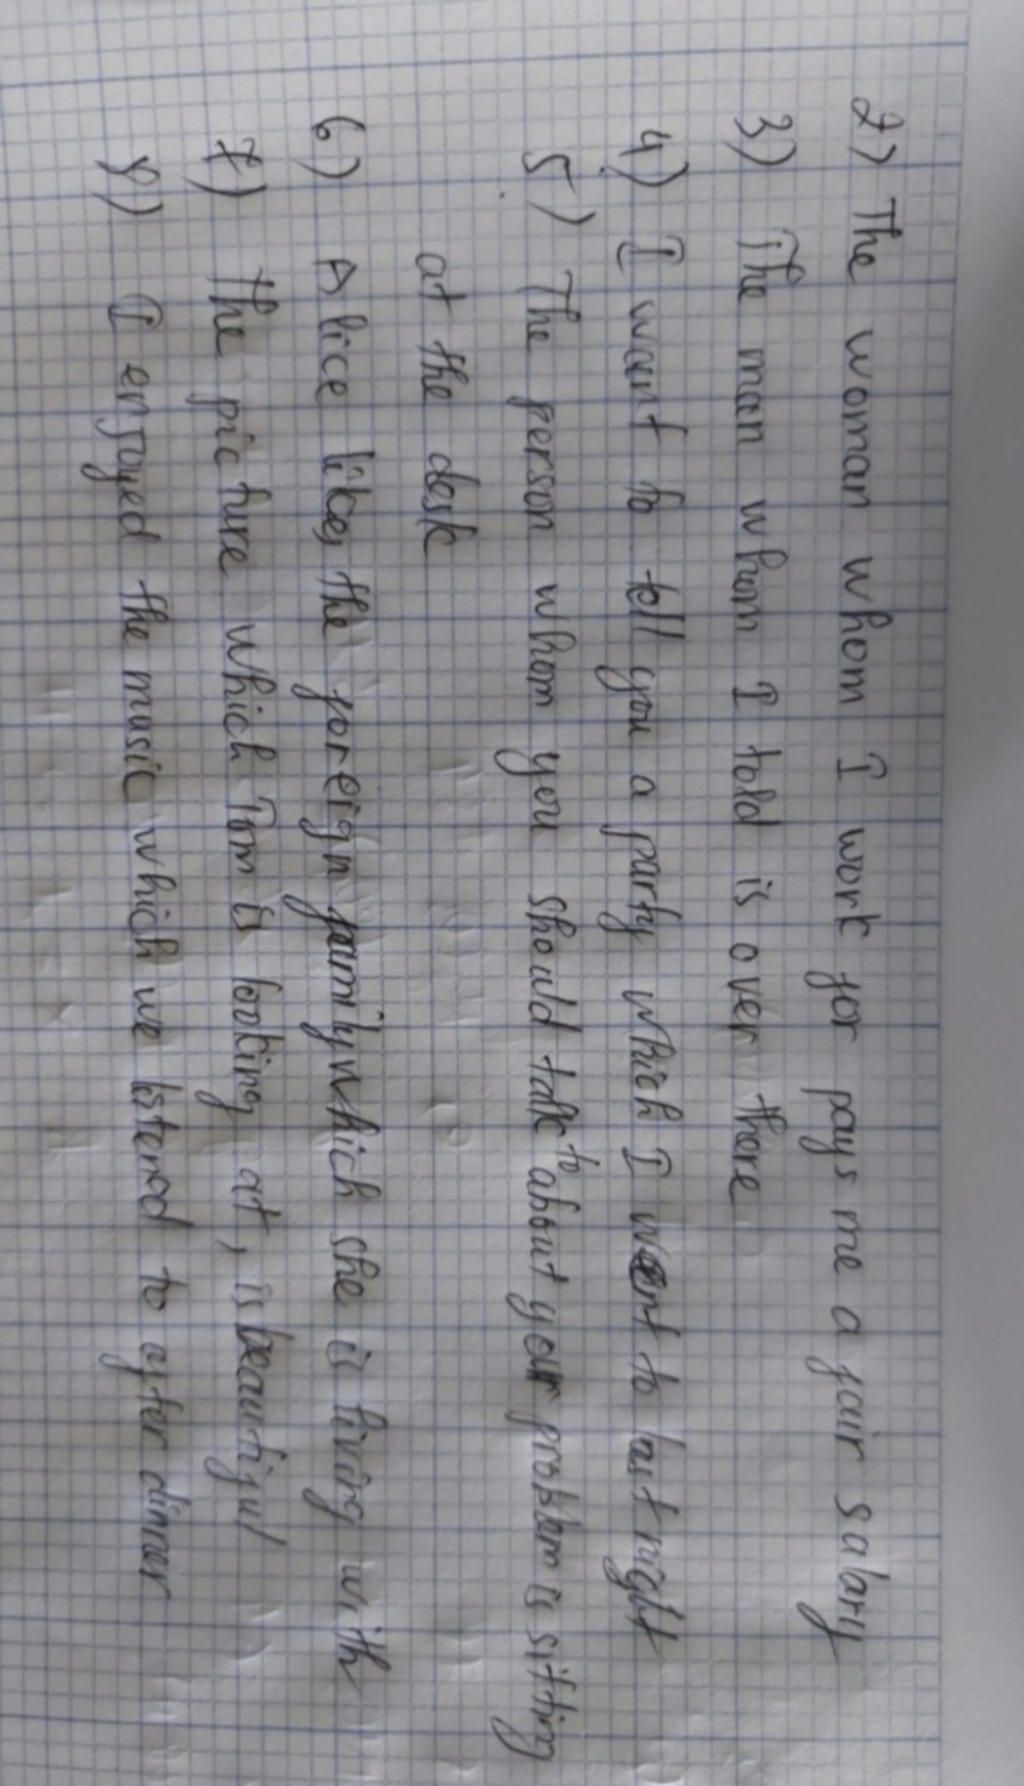 2) The woman whom I work for pays me a fair salary
3) The man whom I told is over there
4) I want to tell you a party which I went to last night
5) The person whom you should talk to about your problem is sitting
at the desk
6) Alice likes the foreign family which she is living with
7) The picture which Tom is looking at, is beautiful
8) I enjoyed the music which we listened to after dinner